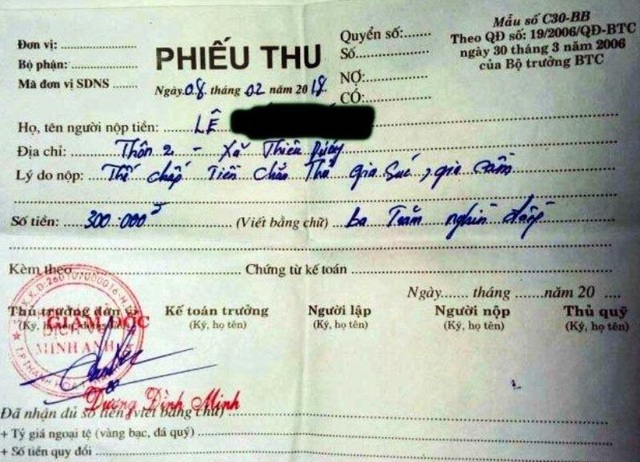 Mẫu số C30-BB
Theo QĐ số: 19/2006/QĐ-BTC
ngày 30 tháng 3 năm 2006
của Bộ trưởng BTC
Đơn vị:
Bộ phận:
Mã đơn vị SDNS
PHIẾU THU
Ngày 08 tháng 02 năm 2018.
Quyển số:
Số
NỢ:
CÓ:
Họ, tên người nộp tiền: LÊ
Địa chỉ: Thôn 2 - Xã Thiệu
Lý do nộp: Thế chấp Tiền Chăn Thả gia Súc, gia cầm
Số tiền: 300.000đ (Viết bằng chữ) ba Trăm nghìn đồng
Kèm theo Chứng từ kế toán
Ngày tháng năm 20
Thủ trưởng đơn vị Kế toán trưởng Người lập Người nộp Thủ quỹ
(Ký, họ tên) (Ký, họ tên) (Ký, họ tên) (Ký, họ tên)
GIÁM ĐỐC
MINH ANH
Dương Đình Minh
Đã nhận đủ số tiền (viết bằng chữ)
+ Tỷ giá ngoại tệ (vàng bạc, đá quý)
+ Số tiền quy đổi